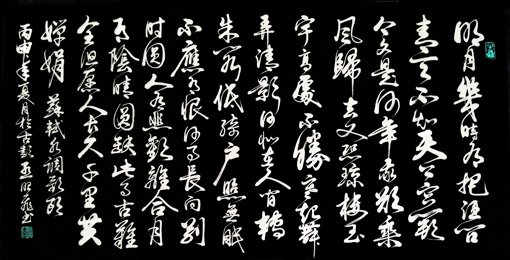 明月幾時有把酒問
青天不知天上宮闕
今夕是何年我欲乘
風歸去又恐瓊樓玉
宇高處不勝寒起舞
弄清影何似在人間轉
朱閣低綺戶照無眠
不應有恨何事長向別
時圓人有悲歡離合月
有陰晴圓缺此事古難
全但願人長久千里共
嬋娟 蘇軾水調歌頭
丙申年夏月於古彭書